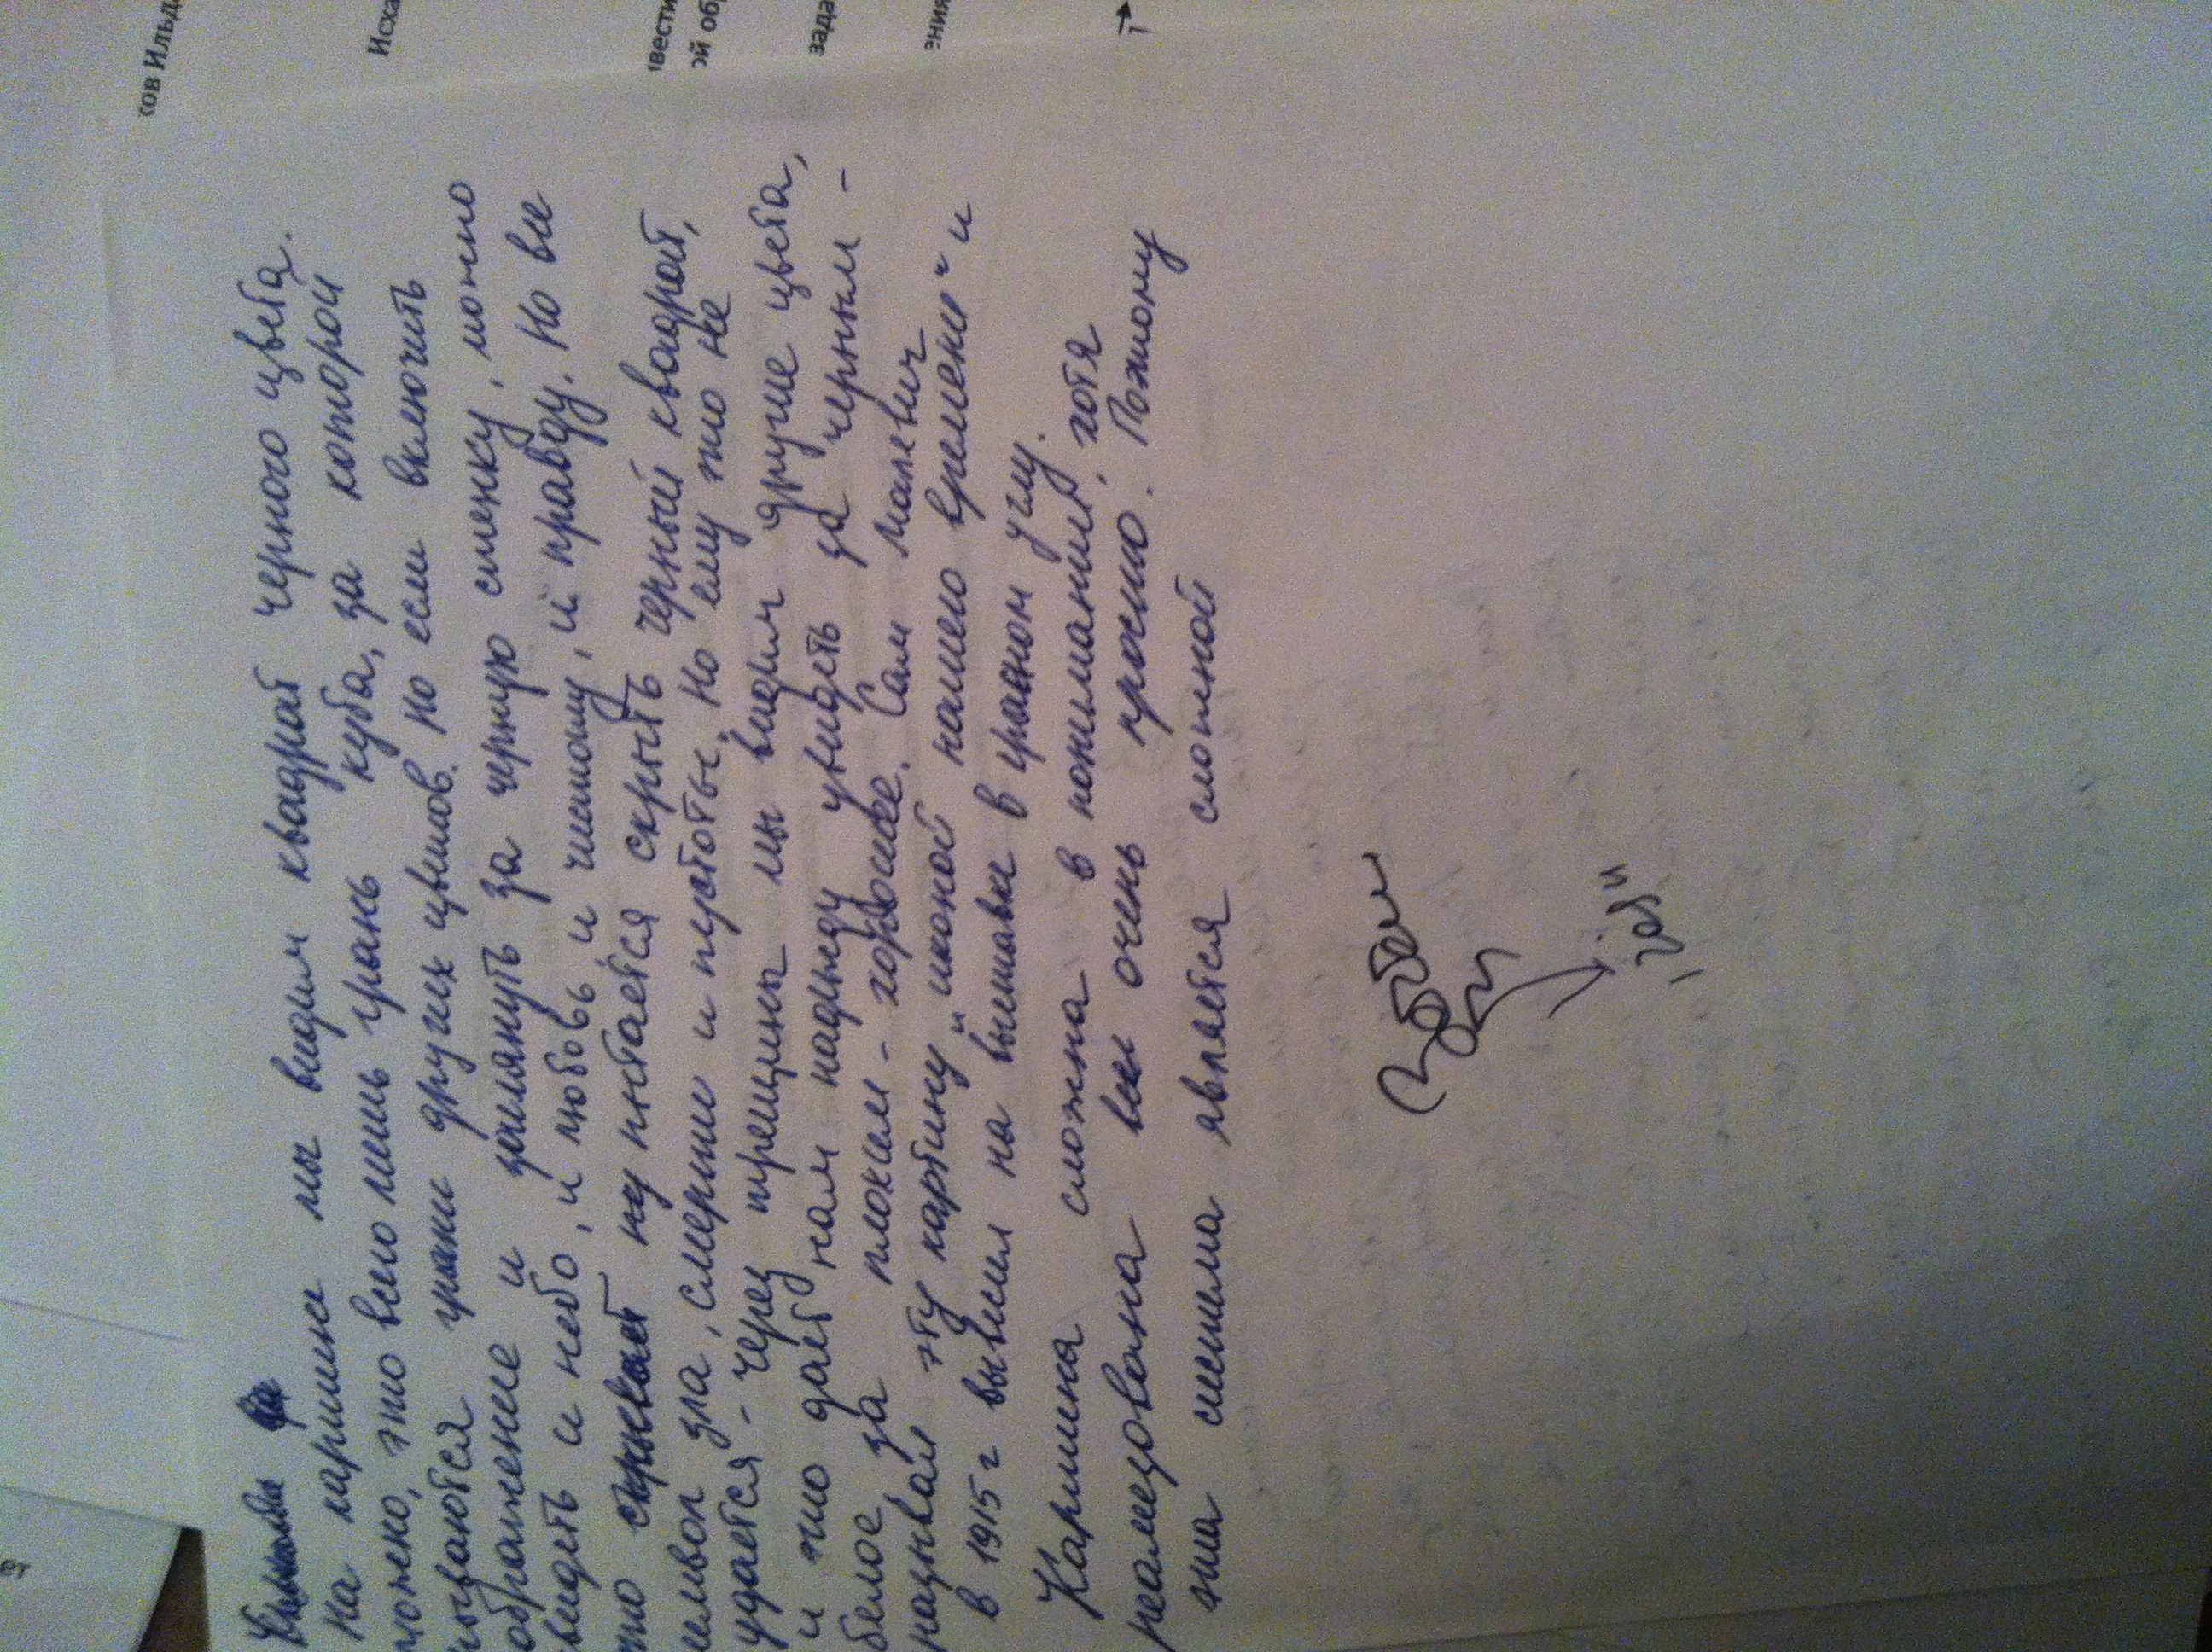 На картине мы видим квадрат черного цвета.
можно, это всего лишь грань куба, за которой
рываются грани других цветов. Но если включить
ображение и заглянуть за черную стенку, можно
видеть и небо, и любовь, и чистоту, и правду. Но все
это скрывает пу пытается скрыть черный квадрат,
имвол зла, смерти и пустоты. Но ему это не
удается - через трещины мы видим другие цвета,
и это дает нам надежду увидеть за черным -
белое, за плохим - хорошее. Сам Малевич
называл эту картину „иконой нашего времени" и
в 1915 г вывесил на выставке в красном углу.
Картина сложна в понимании, хотя
реализована все очень просто. Поэтому
эта система является сложной
ков Ильд
Исха
звести
ой об
зада
ения